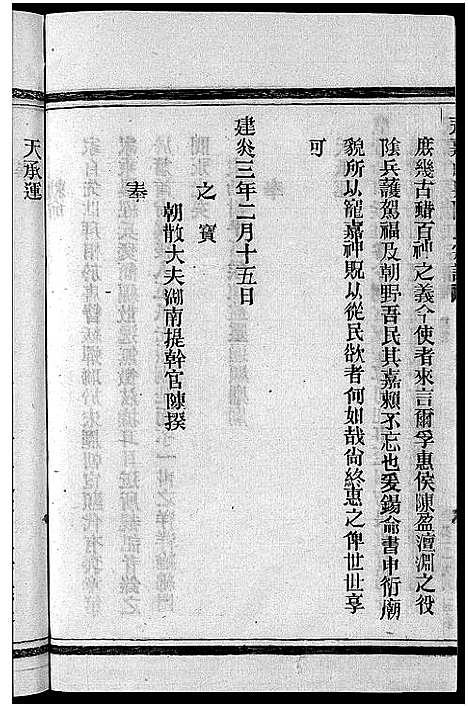 庶幾古䄍百神之義今使者來言爾孚惠侯陳盈澶淵之役
陰兵護駕福及朝野吾民其嘉賴不忘也爰錫命書申衍廟
貌所以寵嘉神貺以從民欲者何如哉尚終惠之俾世世享
可
建炎三年二月十五日
之寶
朝散大夫湖南提幹官陳撰
奉
天承運